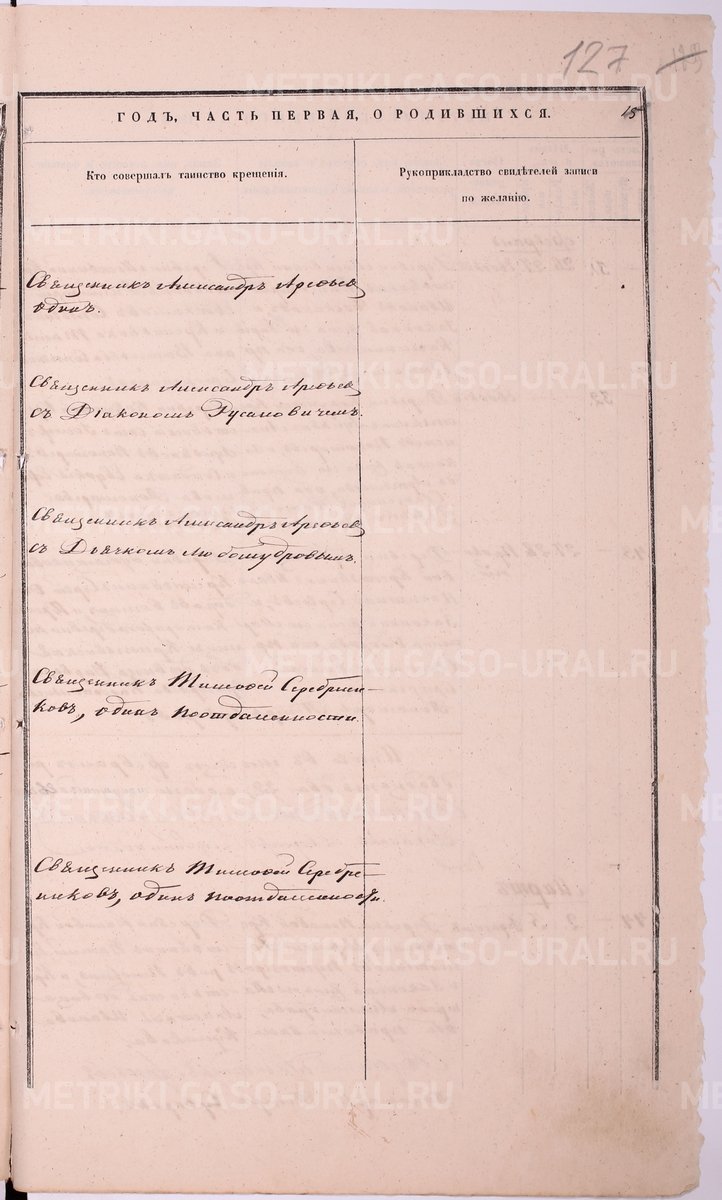 127
ГОДЪ, ЧАСТЬ ПЕРВАЯ, О РОДИВШИХСЯ.
15
Кто совершалъ таинство крещенія.
Рукоприкладство свидѣтелей записи
по желанію.
Священникъ Александръ Арефьевъ
одинъ.
Священникъ Александръ Арефьевъ
съ Діакономъ Русановичемъ.
Священникъ Александръ Арефьевъ
съ Дьячкомъ Любомудровымъ.
Священникъ Тимофей Серебрен-
ковъ, одинъ поотдаленности.
Священникъ Тимофей Серебре-
никовъ, одинъ поотдаленности.
METRIKI.GASO-URAL.RU